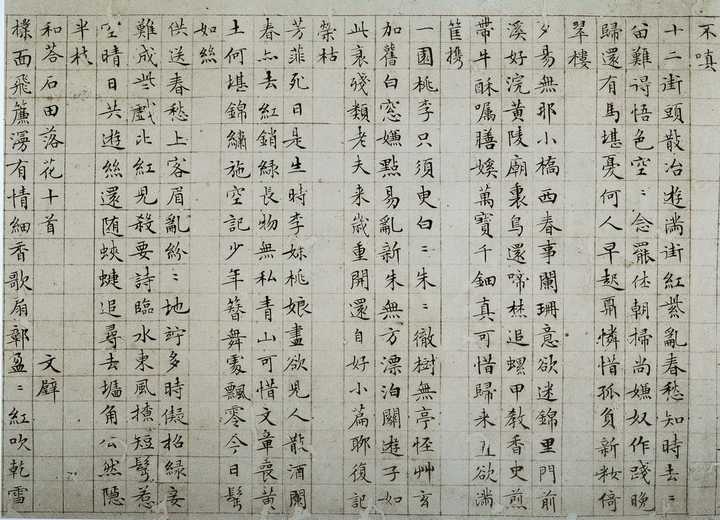 不嗔
十二街頭散冶遊滿街紅紫亂春愁知時去〻
留難得悟色空〻念罷休朝掃尚嫌奴作踐晚
歸還有馬堪憂何人早起鬲憐惜孤負新妝倚
翠樓
夕易無那小橋西春事闌珊意欲迷錦里門前
溪好浣黄陵廟裏鳥還啼焚追螺甲教香史煎
帶牛酥囑膳媛萬寶千鈿真可惜歸來直欲滿
筐攜
一園桃李只須臾白〻朱〻徹樹無亭怪艸玄
加舊白窓嫌點易亂新朱無方漂泊關遊子如
此衰殘類老夫來歲重開還自好小篇聊復記
榮枯
芳菲死日是生時李妹桃娘盡欲兒人散酒闌
春亦去紅銷綠長物無私青山可惜文章喪黄
土何堪錦繡施空記少年簪舞處飄零今日髩
如絲
供送春愁上客眉亂紛〻地竚多時儗招綠妾
難成些戲比紅兒殺要詩臨水東風撩短髩惹
空晴日共遊絲還隨蛺蜨追尋去墻角公然隱
半枝
和荅石田落花十首 文璧
撲面飛簾漫有情細香歌扇鄣盈〻紅吹乾雪